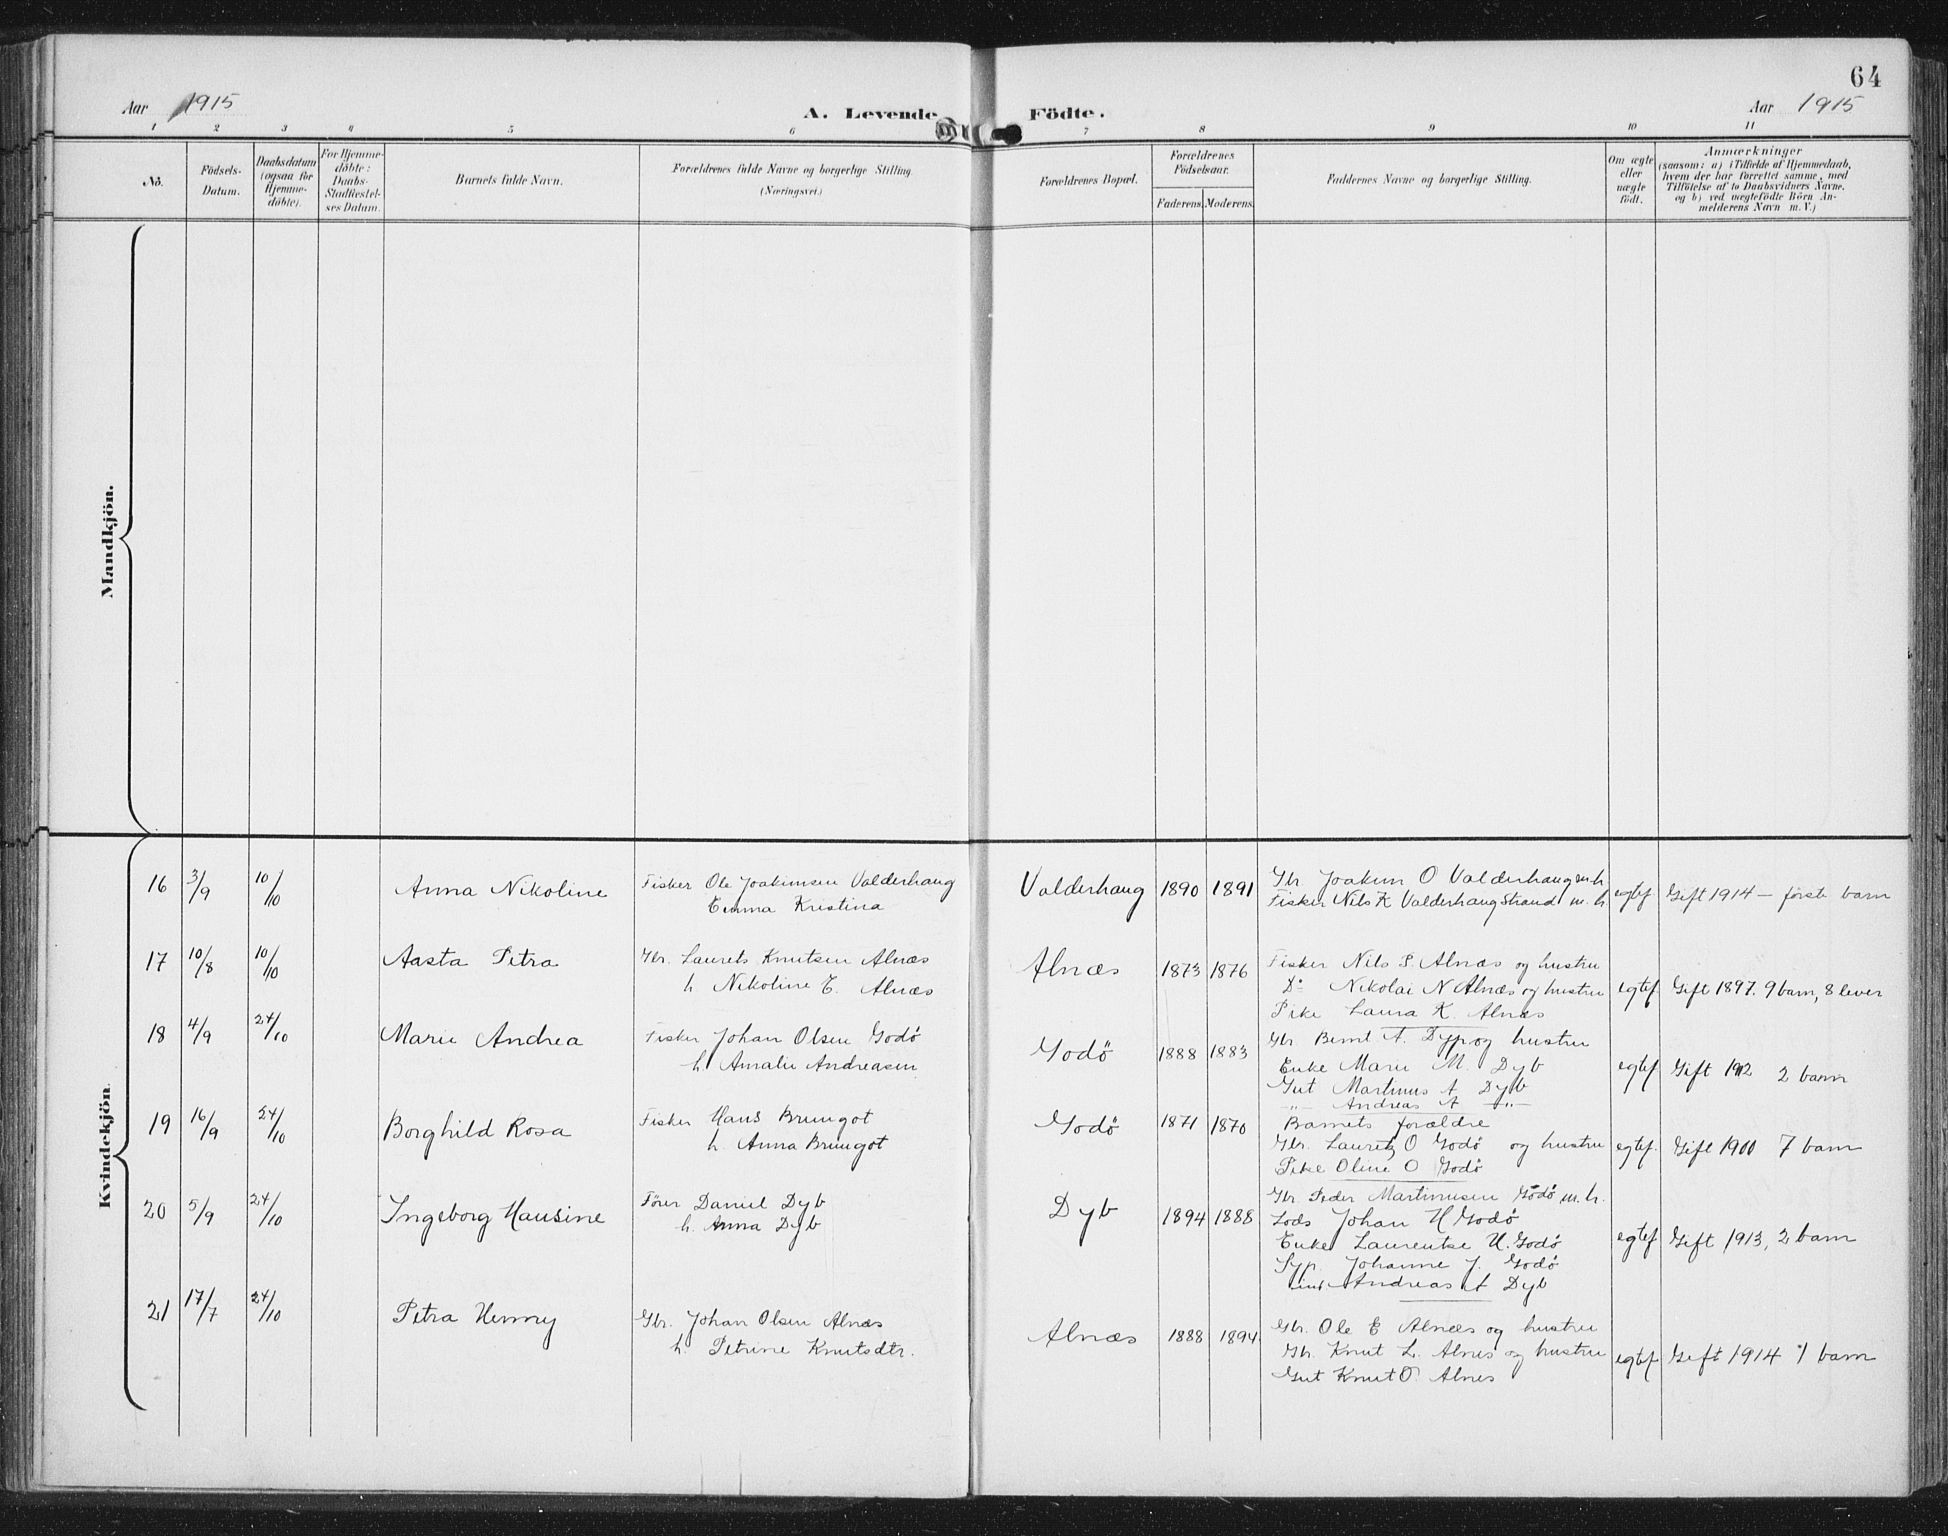 64
Aar 1915
A. Levende Födte.
Aar 1915
1 2 3 4 5 6 7 8 9 10 11
No.
Födsels-Datum.
Daabsdatum (ogsaa for Hjemme-döbte).
For Hjemme-döbte: Daabs-Stadfæstel-ses Datum.
Barnets fulde Navn.
Forældrenes fulde Navne og borgerlige Stilling.
(Næringsvei.)
Forældrenes Bopæl.
Forældrenes Födselsaar.
Faderens. Moderens.
Faddernes Navne og borgerlige Stilling.
Om ægte eller uægte födt.
Anmærkninger
(saasom: a) i Tilfælde af Hjemmedaab,
hvem der har forrettet samme, med
Tilföielse af to Daabsvidners Navne,
og b) ved uægtefödte Börn An-
melderens Navn m. V.)
Mandkjön.
Kvindekjön.
16 3/9 10/10 Anna Nikoline
Fisker Ole Joakimsen Valderhaug
Emma Kristina
Valderhaug 1890 1891
Gbr. Joakim O Valderhaug m.h
Fisker Nils K Valderhaug Strand m. h
egtef Gift 1914 – første barn
17 10/8 10/10 Aasta Petra
Gbr. Laurets Knutsen Alnæs
h. Nikoline E. Alnæs
Alnæs 1873 1876
Fisker Nils P. Alnæs og hustru
Do Nikolai N Alnæs og hustru
Pike Laura K. Alnæs
egtef Gift 1897. 9 barn, 8 lever
18 4/9 24/10 Marie Andrea
Fisker Johan Olsen Godø
h Amalie Andreasen
Godø 1888 1883
Gbr Bernt A. Dyp og hustru
Enke Marie M. Dyb
Gut Martinus A Dyb
-"- Andreas A -"-
egtef Gift 1912 2 barn
19 16/9 24/10 Borghild Rosa
Fisker Hans Brungot
h. Anna Brungot
Godø 1871 1870
Barnets forældre
Gbr. Lauritz O Godø og hustru
Pike Oline O Godø
egtef. Gift 1900 7 barn
20 5/9 24/10 Ingeborg Hansine
Fører Daniel Dyb
h. Anna Dyb
Dyb 1894 1888
Gbr. Peder Martinusen Godø m. h.
Lods Johan H Godø
Enke Laurentse H. Godø
Syp. Johanne J. Godø
Andreas A Dyb
egtef Gift 1913, 2 barn
21 17/7 24/10 Petra Henny
Gbr. Johan Olsen Alnæs
h. Petrine Knutsdtr.
Alnæs 1888 1894
Gbr. Ole E Alnæs og hustru
Gbr. Knut L. Alnes og hustru
Gut Knut O. Alnes
egtef Gift 1914 1 barn